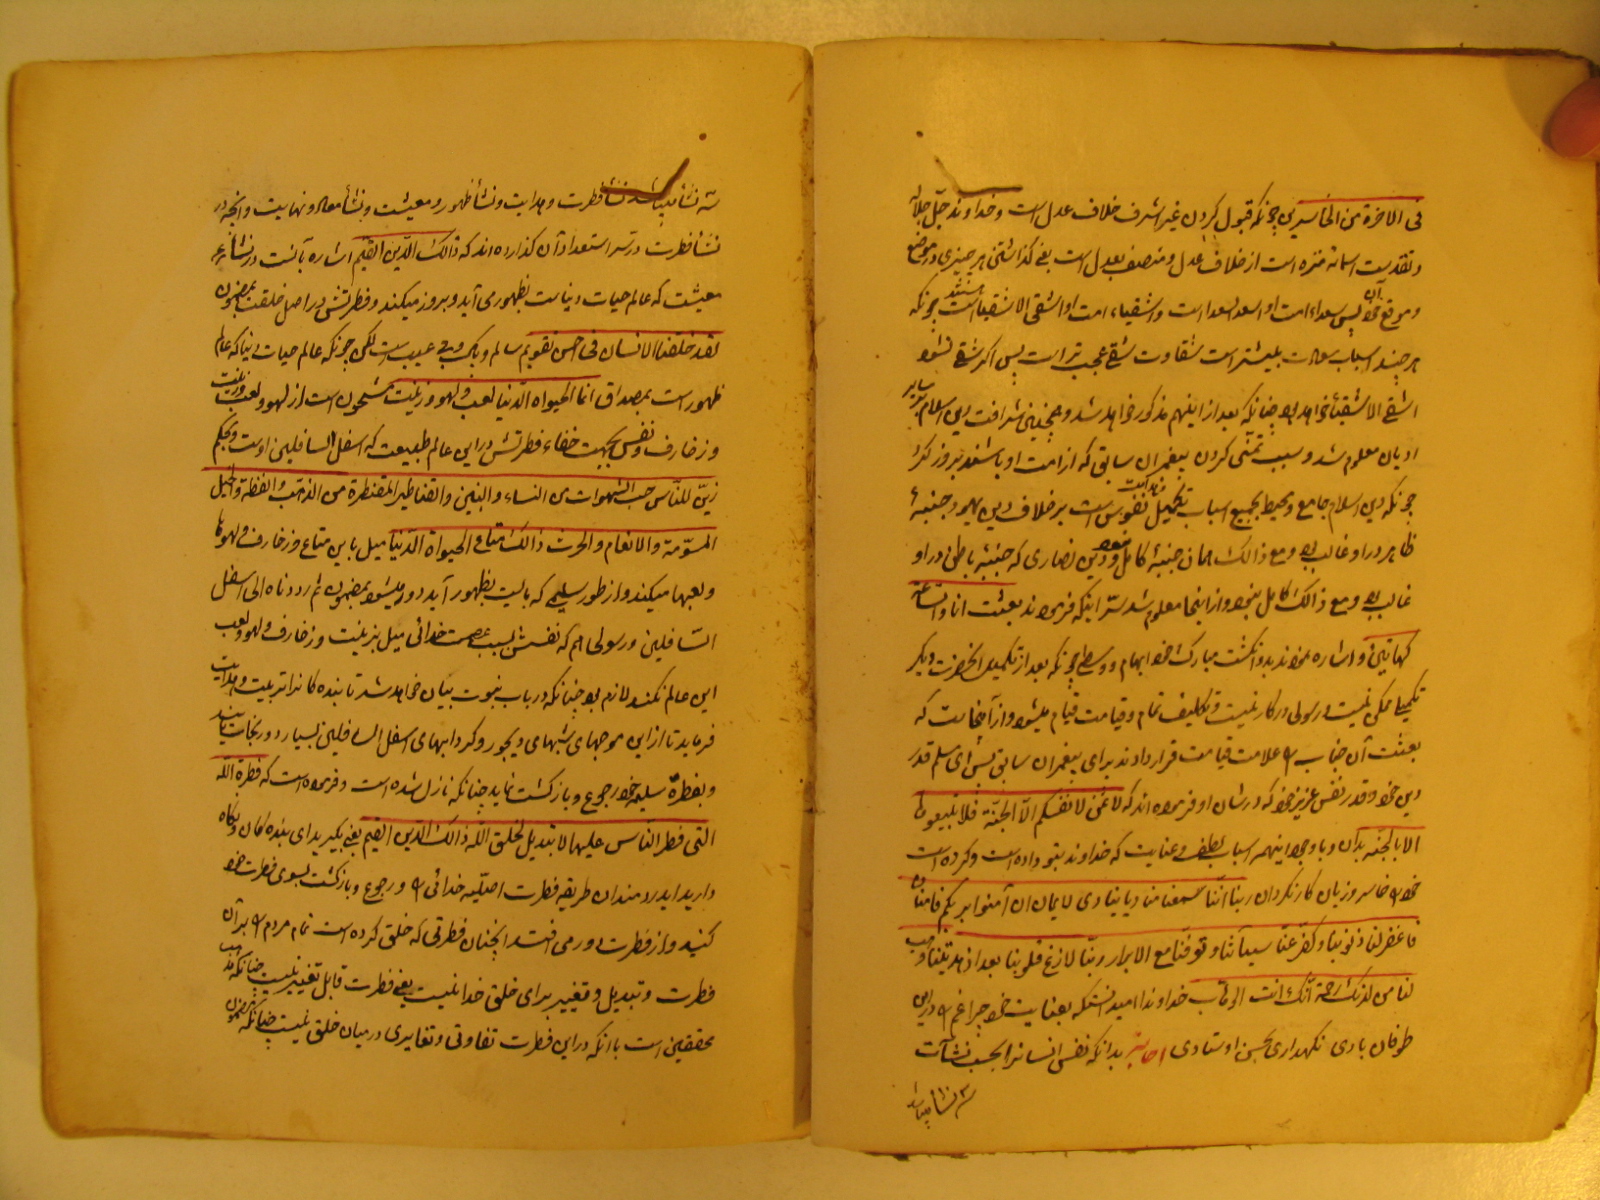 فی الاخرة من الخاسرین چونکه قبول کردن غیر اشرف خلاف عدل است و خداوند جل جلاله
و تقدست اسمائه منزه است از خلاف عدل و متصف بعدل است یعنی گذاشتن هر چیزی در موضع
و موقع خود پس سعداء امت او اسعد السعداست و اشقیاء امت او اشقی الاشقیا است چونکه
هر چند اسباب سعادت بیشتر است شقاوت شقی عجب تر است پس اگر شقی نشود
اشقی الاشقیاء خواهد بود چنانکه بعد از اینهم مذکور خواهد شد و همچنین شرافت دین اسلام بر سایر
ادیان معلوم شد و سبب تمنی کردن پیغمبران سابق که از امت او باشند بروز کرد
چونکه دین اسلام جامع و محیط بجمیع اسباب تکمیل نفوس است بر خلاف دین یهود جنبهٔ
ظاهر در او غالب بود و مع ذالک همان جنبهٔ کامل نبود و دین نصاری که جنبهٔ باطن در او
غالب بود و مع ذالک کامل نبود و از اینجا معلوم شد سر اینکه فرمودند بعثت انا و الساعة
کهاتین و اشاره نمودند بدو انگشت مبارک خود ابهام و وسطی چونکه بعد از تکمیل آنحضرت دیگر
تکمیلی ممکن نیست رسولی در کار نیست و تکلیف تمام و قیامت قیام میشود و از آنجاست که
بعثت آن جناب را علامت قیامت قرار دادند برای پیغمبران سابق پس ای مسلم قدر
دین خود و قدر نفس عزیز خود که در شان او فرموده اند که لا ثمن لانفسکم الا الجنة فلا تبیعوها
الا بالجنة بدان و با وجود اینهمه اسباب لطف و عنایت که خداوند بتو داده است و کرده است
خود را خاسر و زیان کار نگردان ربنا اننا سمعنا منادیا ینادی للایمان ان آمنوا بربکم فامنا
فاغفر لنا ذنوبنا و کفر عنا سیئاتنا و توفنا مع الابرار ربنا لا تزغ قلوبنا بعد اذ هدیتنا و هب
لنا من لدنک رحمة انک انت الوهاب خداوندا امید هستکه بعنایت خود چراغم را در این
طوفان بادی نگهداری بحسن اوستادی بدانکه نفس انسانرا بحسب نشأت
سه نشأ میباشد
سه نشأ میباشد نشأ فطرت و هدایت و نشأ ظهور و معیشت و نشأ معاد و نهایت و آنچه در
نشأ فطرت در سر استعداد آن گذارده اند که ذالک الدین القیم اشاره بآنست در نشأ
معیشت که عالم حیات دنیاست بظهور می آید و بروز میکند و فطرتش در اصل خلقت بمضمون
لقد خلقنا الانسان فی احسن تقویم سالم و پاک و بی عیب است لکن چونکه عالم حیات دنیا که عالم
ظهور است بمصداق انما الحیواة الدنیا لعب و لهو و زینت مشحون است از لهو و لعب و زینت
و زخارف و نفس بجهت خفاء فطرتش در این عالم طبیعت که اسفل السافلین اوست و بحکم
زین للناس حب الشهوات من النساء و البنین و القناطیر المقنطرة من الذهب و الفضة و الخیل
المسومة و الانعام و الحرث ذالک متاع الحیواة الدنیا میل باین متاع و زخارف و لهوها
و لعبها میکند و از طور سلیمی که بایست بظهور آید دور میشود بمضمون ثم رددناه الی اسفل
السافلین و رسولی هم که نفسش بسبب عصمت خدائی میل بزینت و زخارف و لهو و لعب
این عالم نکند لازم بود چنانکه در باب نبوت بیان خواهد شد تا بنده گانرا تربیت و هدایت
فرماید تا از این موجهای شبهای دیجور و گردابهای اسفل السافلین بسیار دور نجات یابند
و بفطرة سلیمه خود رجوع و بازگشت نماید چنانکه نازل شده است و فرموده است که فطرة الله
التی فطر الناس علیها لا تبدیل لخلق الله ذالک الدین القیم یعنی بگیرید ای بنده گان و نگاه
دارید ای دردمندان طریقه فطرت اصلیه خدائی را و رجوع و بازگشت بسوی فطرت خود
کنید و از فطرت دور می افتید آنچنان فطرتی که خلق کرده است تمام مردم را بر آن
فطرت و تبدیل و تغییر برای خلق خدا نیست یعنی فطرت قابل تغییر نیست چنانکه مذهب
محققین است با آنکه در این فطرت تفاوتی و تغایری در میان خلق نیست چنانکه بمضمون